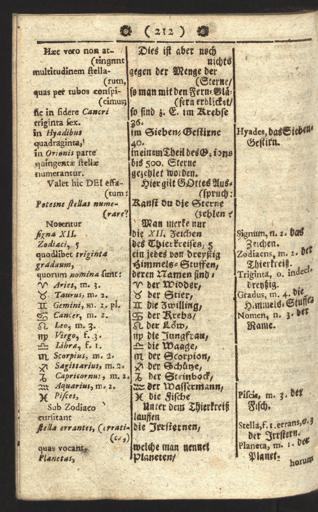 ( 212 )
Hæc vero non at-
(tingnnt
multitudinem stella-
(rum,
quas per tubos conspi-
(cimus
sic in sidere Cancri
triginta sex.
in Hyadibus
quadraginta,
in Orionis parte
quingentæ stellæ
numerantur.
Valet hic DEI effa-
(tum:
Potesne stellas nume-
(rare?
Notentur
signa XII.
Zodiaci, 5
quodlibet triginta
graduum,
quorum nomina sunt:
♈ Aries, m. 3.
♉ Taurus, m. 2.
♊ Gemini, m. 2. pl.
♋ Cancer, m. 2.
♌ Leo, m. 3.
♍ Virgo, f. 3.
♎ Libra, f. 1.
♏ Scorpius, m. 2.
♐ Sagittarius, m. 2.
♑ Capricornus, m. 2.
♒ Aquarius, m. 2.
♓ Pisces,
Sub Zodiaco
cursitant
stellæ errantes, (errati-
(cæ,)
quas vocant,
Planetas,
Dies ist aber noch
nichts
gegen der Menge der
(Sterne/
so man mit den Fern-Glä-
(sern erblicket/
so sind z. E. im Krebse
36.
im Sieben-Gestirne
40.
in einem Theil des Orions
bis 500. Sterne
gezehlet worden.
Hier gilt GOttes Aus-
(spruch:
Kanst du die Sterne
(zehlen?
Man merke nur
die XII. Zeichen
des Thierkreises, 5
ein jedes von dreyßig
Himmels-Stuffen/
deren Namen sind:
♈ der Widder/
♉ der Stier/
♊ die Zwilling/
♋ der Krebs/
♌ der Löw/
♍ die Jungfrau/
♎ die Waage/
♏ der Scorpion/
♐ der Schütze/
♑ der Steinbock/
♒ der Wassermann/
♓ die Fische
Unter dem Thierkreiß
lauffen
die Irrsternen/
welche man nennet
Planeten/
Hyades, das Sieben-
Gestirn.
Signum, n. 2. das
Zeichen.
Zodiacus, m. 2. der
Thierkreiß.
Triginta, o. indecl.
dreyßig.
Gradus, m. 4. die
Himmels-Stuffe.
Nomen, n. 3. der
Name.
Piscis, m. 3. der
Fisch.
Stella, f. 1. errans, o. 3
der Irrstern.
Planeta, m. 1. der
Planet.
horum